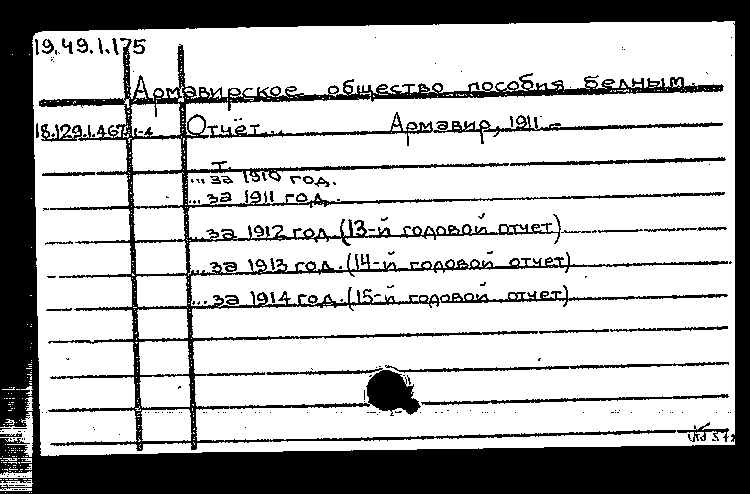 19.49.1.175
Армавирское общество пособия бедным.
18.129.1.467 1-4 Отчёт... Армавир, 1911 –
т
... за 1910 год.
... за 1911 год.
... за 1912 год (13-й годовой отчет)
... за 1913 год. (14-й годовой отчет)
... за 1914 год. (15-й годовой отчет)